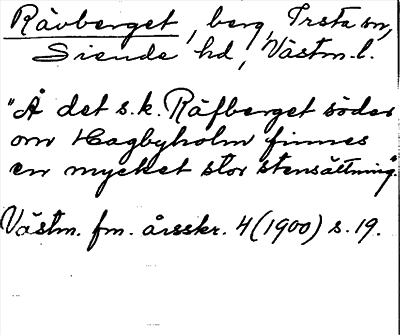 Rävberget, berg, Irsta sn,
Siende hd, Västm.l.
"Å det s.k. Räfberget söder
om Hagbyholm finnes
en mycket stor stensättning".
Västm. fm. årsskr. 4 (1900) s. 19.